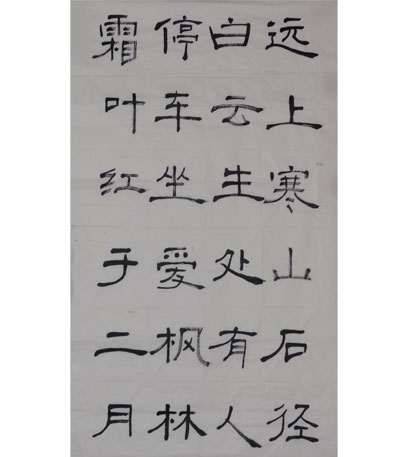 远上寒山石径
白云生处有人
停车坐爱枫林
霜叶红于二月